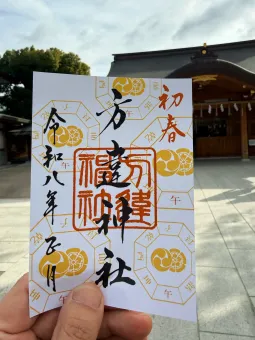 初春
方違神社
方違
神社
令和八年正月
午
午